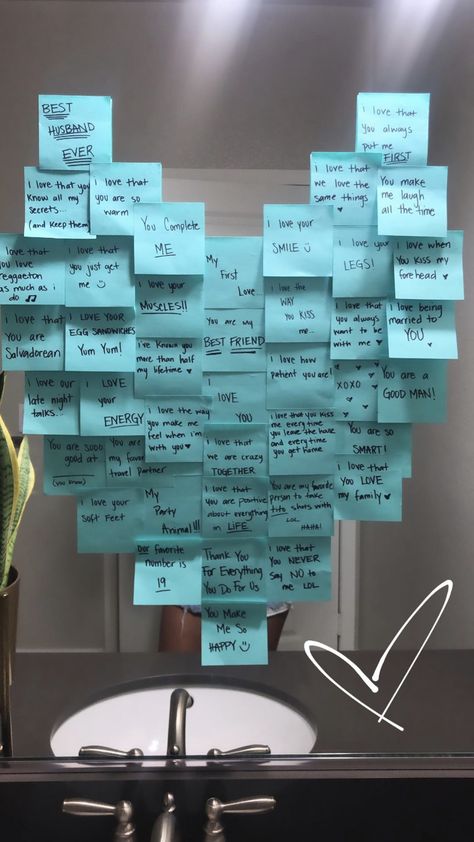 BEST
HUSBAND
EVER
i love that
You always
put me
FIRST
i love that you
Know all my
secrets...
(and keep them)
i love that
you are so
warm
i love that
we love the
same things
You make
me laugh
all the time
You Complete
ME
i love your
SMILE
i love that
you love
reggaeton
as much as i
do
i love that
you just get
me
My
First
Love...
i love your
LEGS!
i love when
you kiss my
forehead
i love your
MUSCLES!!
i love the
WAY
you KISS
me...
i love that
you always
want to be
with me
i love being
married to
YOU
i love that
You are
Salvadorean
I LOVE YOUR
EGG SANDWICHES
Yum Yum!
i've Known you
more than half
my lifetime
You are my
BEST FRIEND
i love how
patient you are!
XOXO
You are a
GOOD MAN!
i love our
late night
talks...
i LOVE
your
ENERGY
i love the way
you make me
feel when i'm
with You
i LOVE
YOU
i love that you Kiss
me every time
you leave the house
and every time
you get home.
You are so
SMART!
You are sooo
good at
(you know)
You are my
favorite
travel Partner
i love that
we are crazy
TOGETHER
You are my favorite
person to take
tito shots with
LOL
HAHA!
i love that
You LOVE
my family
i love your
Soft Feet
My
Party
Animal!!!
i love that
you are positive
about everything
in LIFE
Our favorite
number is
19
Thank You
For Everything
You Do For Us
i love that
you NEVER
say NO to
me LOL
You Make
Me So
HAPPY